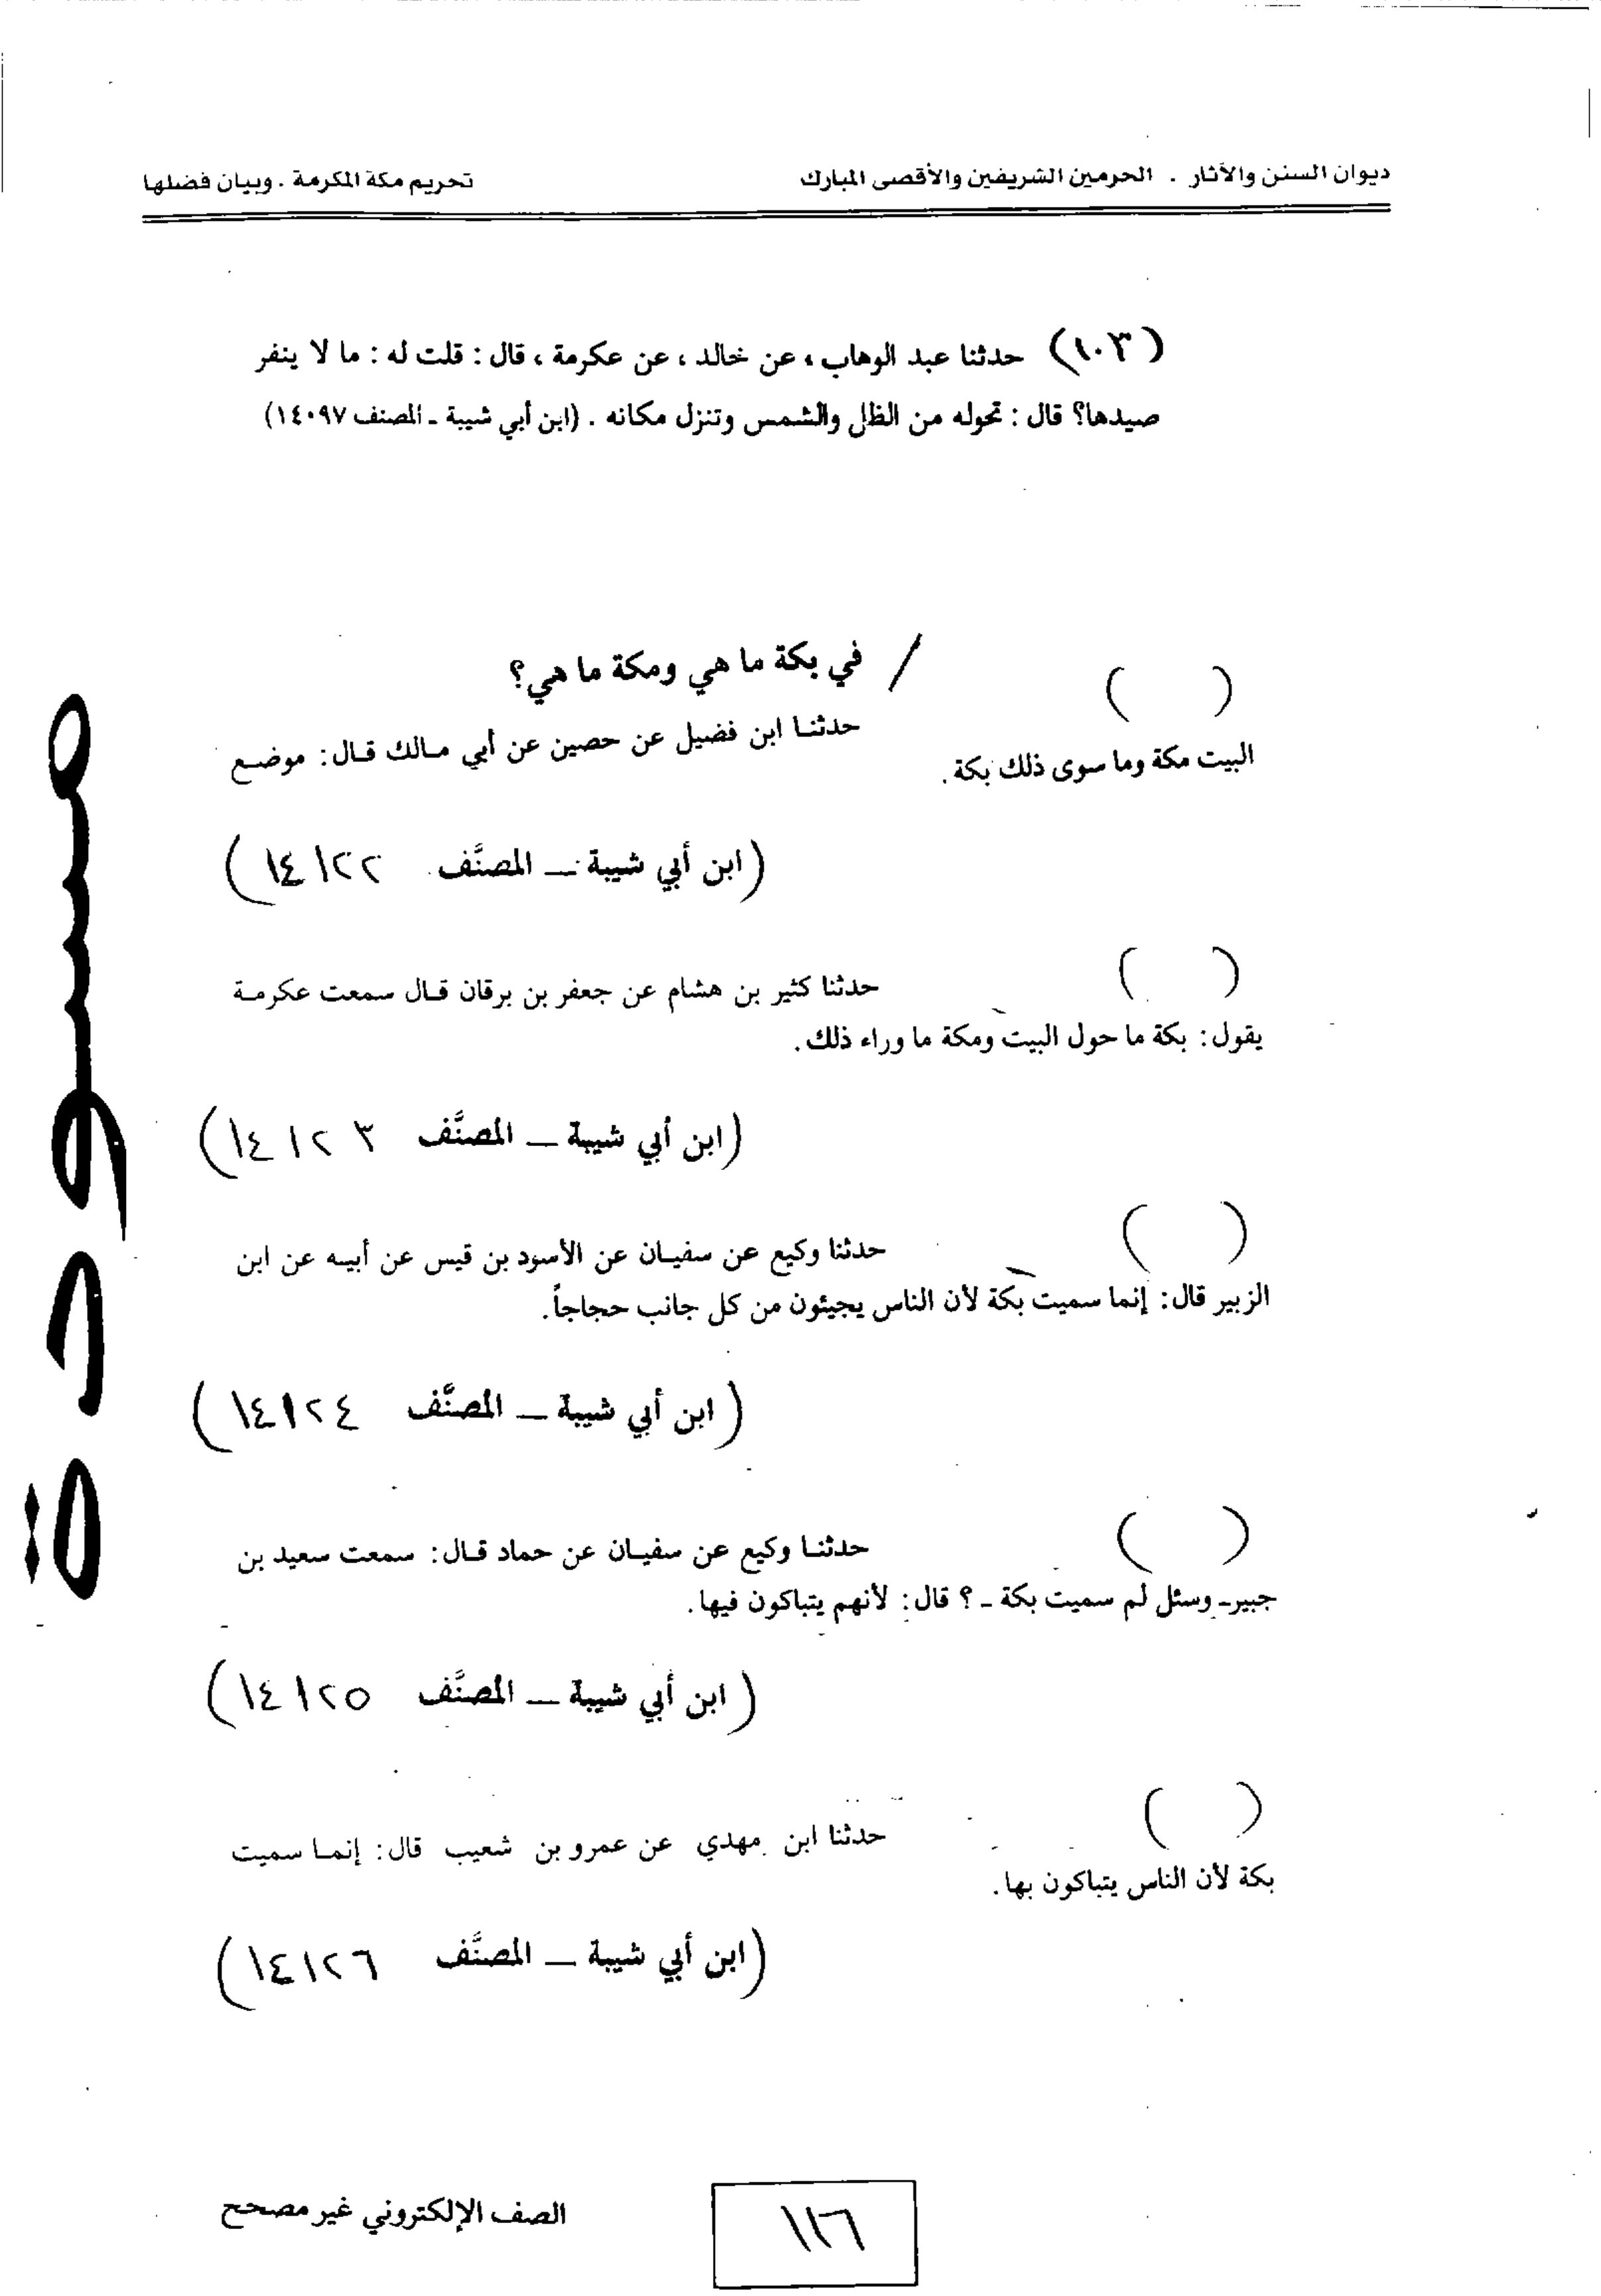 ديوان السنن والآثار . الحرمين الشريفين والأقصى المبارك
تحريم مكة المكرمة . وبيان فضلها
(١٠٣) حدثنا عبد الوهاب ، عن خالد ، عن عكرمة ، قال : قلت له : ما لا ينفر
صيدها؟ قال : تحوله من الظل والشمس وتنزل مكانه . (ابن أبي شيبة ـ المصنف ١٤٠٩٧)
/ في بكة ما هي ومكة ما هي؟
( ) حدثنا ابن فضيل عن حصين عن أبي مالك قال: موضع
البيت مكة وما سوى ذلك بكة.
(ابن أبي شيبة ــ المصنَّف ١٤١٢٢)
( ) حدثنا كثير بن هشام عن جعفر بن برقان قال سمعت عكرمة
يقول: بكة ما حول البيت ومكة ما وراء ذلك.
(ابن أبي شيبة ــ المصنَّف ١٤١٢٣)
( ) حدثنا وكيع عن سفيان عن الأسود بن قيس عن أبيه عن ابن
الزبير قال: إنما سميت بكة لأن الناس يجيئون من كل جانب حجاجاً.
(ابن أبي شيبة ــ المصنَّف ١٤١٢٤)
( ) حدثنا وكيع عن سفيان عن حماد قال: سمعت سعيد بن
جبير ـ وسئل لم سميت بكة ـ؟ قال: لأنهم يتباكون فيها.
(ابن أبي شيبة ــ المصنَّف ١٤١٢٥)
( ) حدثنا ابن مهدي عن عمرو بن شعيب قال: إنما سميت
بكة لأن الناس يتباكون بها.
(ابن أبي شيبة ــ المصنَّف ١٤١٢٦)
مسودة
١١٦
الصف الإلكتروني غير مصحح